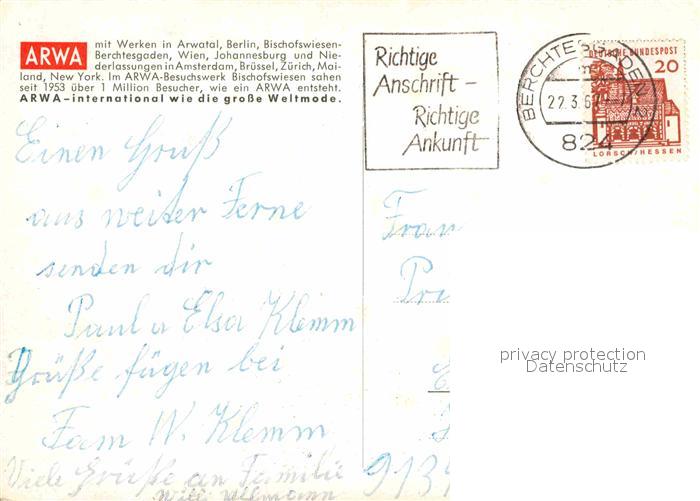 ARWA
mit Werken in Arwatal, Berlin, Bischofswiesen-
Berchtesgaden, Wien, Johannesburg und Nie-
derlassungen in Amsterdam, Brüssel, Zürich, Mai-
land, New York. Im ARWA-Besuchswerk Bischofswiesen sahen
seit 1953 über 1 Million Besucher, wie ein ARWA entsteht.
ARWA–international wie die große Weltmode.
Richtige
Anschrift –
Richtige
Ankunft
BERCHTESGADEN
22.3.6
824
DEUTSCHE BUNDESPOST
20
LORSCH/HESSEN
Einen Gruß
aus weiter Ferne
senden dir
Paul u Elsa Klemm
Grüße fügen bei
Fam W. Klemm
Viele Grüße an Familie
Willi
Frau
privacy protection
Datenschutz
913